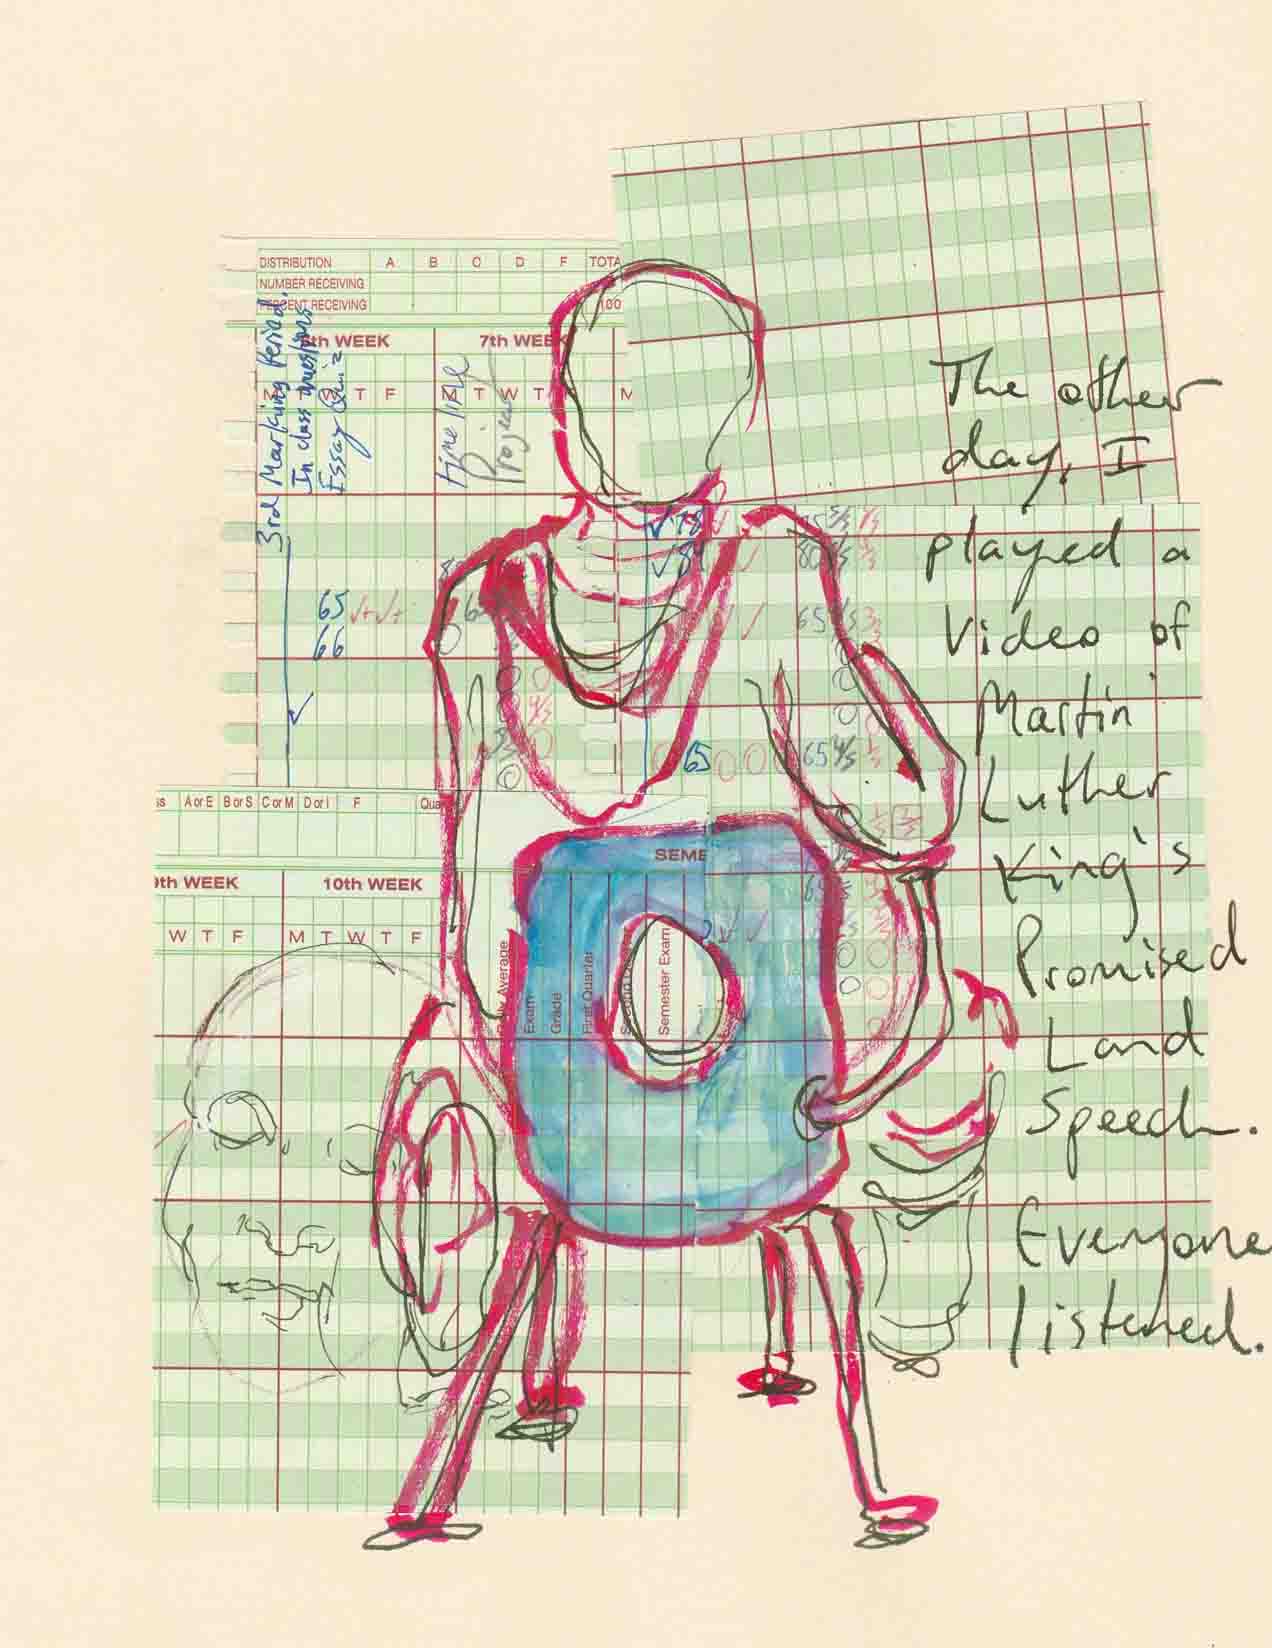 DISTRIBUTION A B C D F TOTA
NUMBER RECEIVING
PERCENT RECEIVING 100
3rd Marking Period.
In class questions
Essay Quiz
th WEEK
7th WEEK
T F
M T W T
M
timeline
Project
The other
day, I
played a
Video of
Martin
Luther
King's
Promised
Land
Speech.
Everyone
listened.
65
66
65
65
65
80
A or E B or S C or M D or I F Qua
SEME
9th WEEK
10th WEEK
W T F
M T W T F
Daily Average
Exam
Grade
First Quarter
Semester Exam